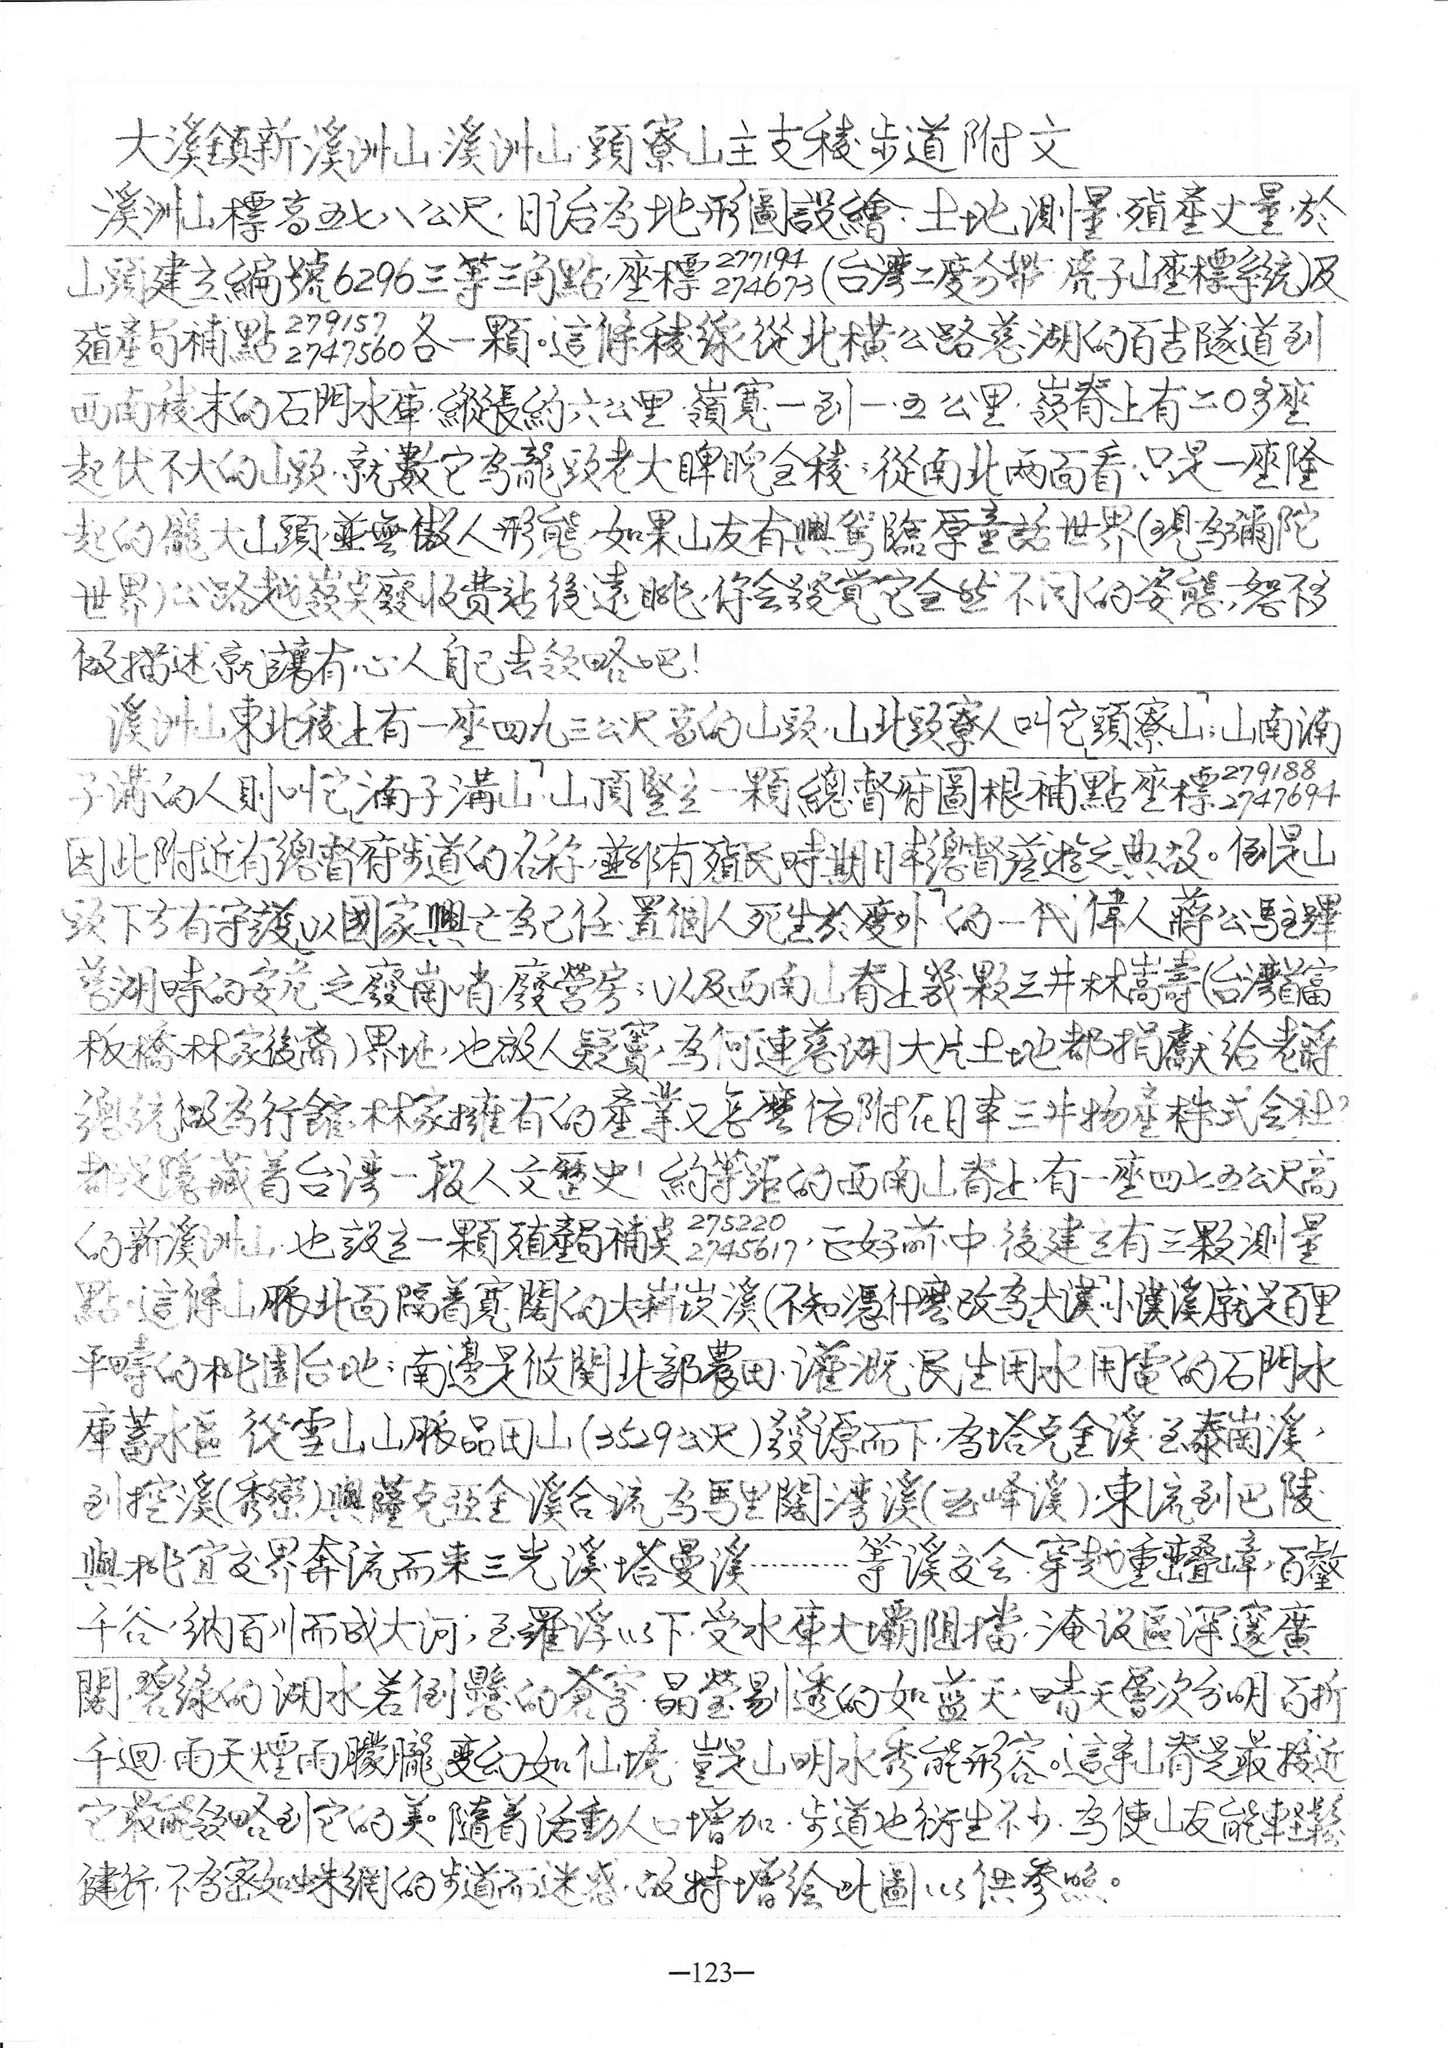 大溪鎮新溪洲山.溪洲山.頭寮山主支稜步道附文
溪洲山標高五七八公尺.日治為地形圖設繪.土地測量.殖產丈量.於
山頭建立編號6296三等三角點.座標277194 274673(台灣二度分帶 虎子山座標系統)及
殖產局補點279157 2747560各一顆。這條稜線從北橫公路慈湖的百吉隧道到
西南稜末的石門水庫.縱長約六公里.嶺寬一到一.五公里.嶺脊上有二0多座
起伏不大的山頭.就數它為龍頭老大睥睨全稜;從南北兩面看.只是一座隆
起的龐大山頭.並無傲人形態.如果山友有興駕臨原童話世界(現為彌陀
世界)公路越嶺奌廢收費站後遠眺,你会發覺它全然不同的姿態,恕不多
做描述.就讓有心人自己去領略吧!
溪洲山東北稜上有一座四九三公尺高的山頭.山北頭寮人叫它「頭寮山」;山南湳
子溝的人則叫它「湳子溝山」.山頂豎立一顆總督府圖根補點座標279188 2747694
因此附近有總督府步道的名称.並非有殖民時期日本總督蒞遊之典故。倒是山
頭下方有守護「以國家興亡為己任.置個人死生於度外」的一代偉人蔣公駐蹕
慈湖時的安危之廢崗哨.廢營房;以及西南山脊上幾顆三井林嵩壽(台灣首富
板橋林家後裔)界址,也啟人疑竇,為何連慈湖大片土地都捐獻給老蔣
總統做為行館.林家擁有的產業又怎麼依附在日本三井物產株式会社?
都是隱藏着台湾一段人文歷史!約等距的西南山脊上.有一座四七五公尺高
的新溪洲山.也設立一顆殖產局補奌275220 2745617,正好前.中.後建立有三顆測量
點.這條山脈北面隔着寬闊的大嵙崁溪(不知憑什麼改為「大漢」小漢溪)就是百里
平疇的桃園台地;南邊是攸関北部農田.灌溉.民生用水用電的石門水
庫蓄水區 從雪山山脈品田山(3529公尺)發源而下.為塔克金溪.至泰崗溪,
到控溪(秀巒)與薩克亞金溪合流為馬里闊湾溪(玉峰溪).東流到巴陵
與桃宜交界奔流而來三光溪.塔曼溪………等溪交会.穿越重巒疊嶂,百壑
千谷,納百川而成大河,至羅浮以下.受水庫大壩阻擋.淹没區深邃廣
闊.碧綠的湖水若倒懸的蒼穹.晶瑩剔透的如藍天.晴天層次分明.百折
千迴.雨天煙雨朦朧.變幻如仙境.豈是山明水秀能形容。這条山脊是最接近
它最能領略到它的美。隨着活動人口增加.步道也衍生不少.為使山友能輕鬆
健行.不為密如蛛網的步道而迷惑.故特增绘此圖以供參照。
—123—